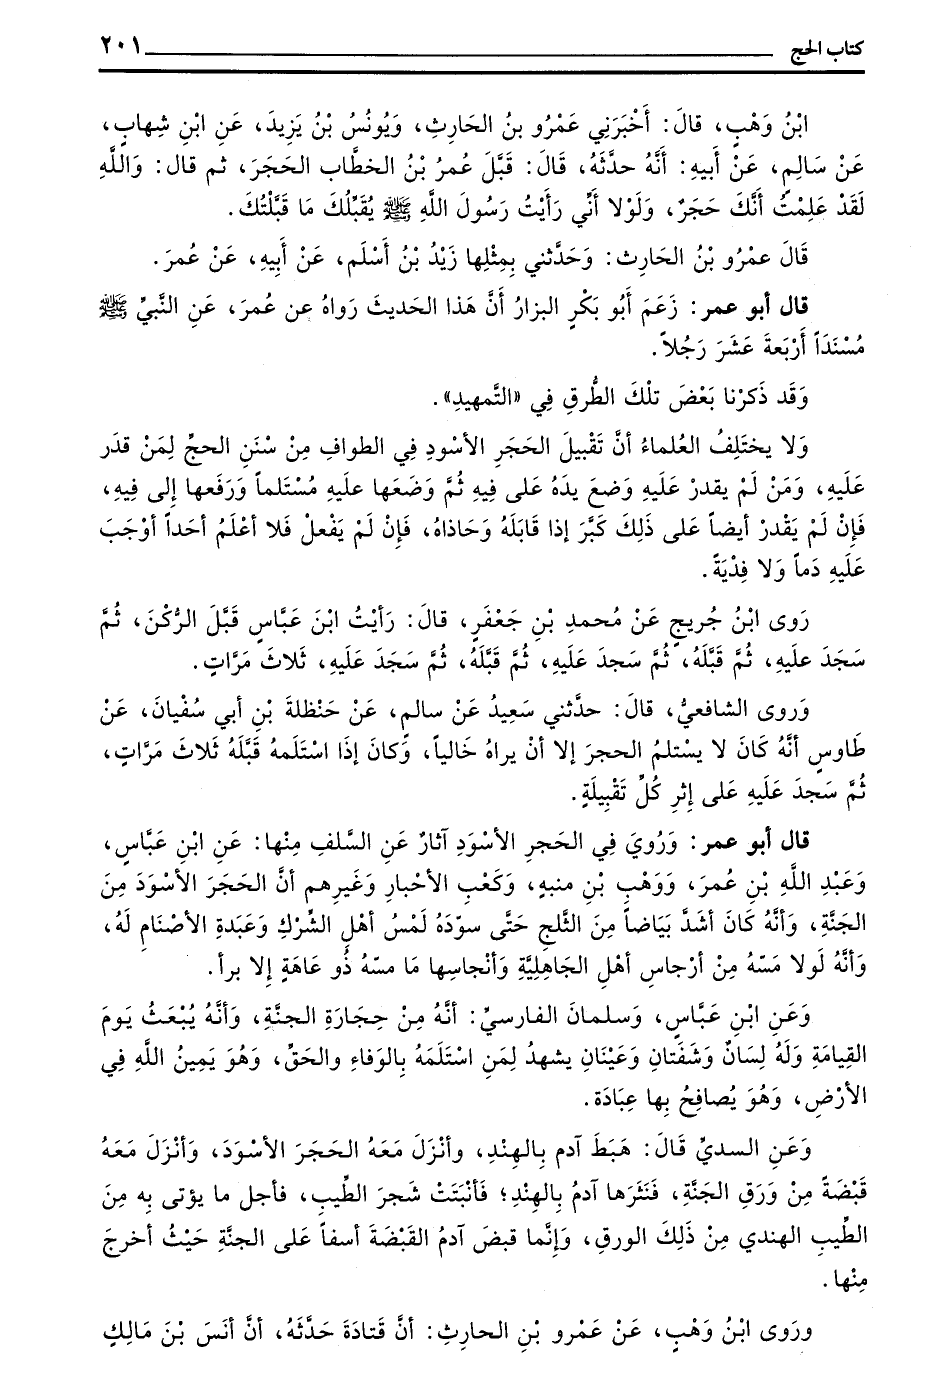 كتاب الحج ٢٠١
ابْنُ وَهْبٍ، قالَ: أَخْبَرَنِي عَمْرُو بنُ الحَارِثِ، وَيُونُسُ بْنُ يَزِيدَ، عَنِ ابْنِ شِهابٍ،
عَنْ سَالِمٍ، عَنْ أبيهِ: أَنَّهُ حدَّثَهُ، قَالَ: قَبَّلَ عُمرُ بْنُ الخطَّاب الحَجَرَ، ثم قال: وَاللَّهِ
لَقَدْ عَلِمْتُ أنَّكَ حَجَرٌ، وَلَوْلا أنِّي رَأيْتُ رَسُولَ اللَّهِ ﷺ يُقَبِّلُكَ مَا قَبَّلْتُكَ.
قَالَ عمْرُو بْنُ الحَارِث: وَحَدَّثني بِمِثْلِها زَيْدُ بْنُ أسْلَم، عَنْ أَبِيهِ، عَنْ عُمرَ.
قال أبو عمر: زَعَمَ أَبُو بَكْرٍ البزارُ أنَّ هَذا الحَديثَ رَواهُ عن عمرَ، عَنِ النَّبيِّ ﷺ
مُسْنَدَاً أرْبَعةَ عَشَرَ رَجُلاً.
وَقَد ذَكرْنا بَعْضَ تلْكَ الطُّرقِ فِي «التَّمهيدِ».
وَلا يختَلِفُ العُلماءُ أنَّ تَقْبيلَ الحَجَرِ الأسْودِ فِي الطوافِ مِنْ سُنَنِ الحجِّ لِمَنْ قدَر
عَلَيهِ، وَمَنْ لَمْ يقدرْ عَلَيهِ وَضعَ يدَهُ عَلى فِيهِ ثُمَّ وَضَعَها علَيهِ مُسْتَلماً وَرَفَعها إلى فِيهِ،
فَإنْ لَمْ يَقْدرْ أيضاً عَلى ذَلِكَ كَبَّرَ إذا قَابَلَهُ وَحَاذاهُ، فَإنْ لَمْ يَفْعلْ فَلا أعْلَمُ أحَداً أوْجَبَ
عَلَيهِ دَماً وَلا فِدْيَةً.
رَوى ابْنُ جُريجٍ عَنْ مُحمدِ بْنِ جَعْفَرٍ، قالَ: رَأيْتُ ابْنَ عَبَّاسٍ قَبَّلَ الرُّكْنَ، ثُمَّ
سَجَدَ علَيهِ، ثُمَّ قَبَّلَهُ، ثُمَّ سَجدَ عَلَيهِ، ثُمَّ قَبَّلَهُ، ثُمَّ سَجَدَ عَلَيهِ، ثَلاثَ مَرَّاتٍ.
وَروى الشافعيُّ، قالَ: حدَّثني سَعِيدُ عَنْ سالم، عَنْ حَنْظلةَ بْنِ أبي سُفْيانَ، عَنْ
طَاوسٍ أنَّهُ كَانَ لا يسْتلمُ الحجرَ إلا أنْ يراهُ خَالياً، وَكانَ إذَا اسْتَلَمهُ قَبَّلَهُ ثَلاثَ مَرَّاتٍ،
ثُمَّ سَجدَ عَلَيهِ عَلى إثرِ كُلِّ تَقْبِيلَةٍ.
قال أبو عمر: وَرُوِيَ فِي الحَجرِ الأسْوَدِ آثارٌ عَنِ السَّلفِ مِنْها: عَنِ ابْنِ عَبَّاسٍ،
وَعَبْدِ اللَّهِ بْنِ عُمرَ، وَوَهْبِ بْنِ منبهٍ، وَكَعْبِ الأحْبارِ وَغَيرِهم أنَّ الحَجَرَ الأسْوَدَ مِنَ
الجَنَّةِ، وَأنَّهُ كَانَ أشَدَّ بَيَاضاً مِنَ الثَّلجِ حَتَّى سوّدَهُ لَمْسُ أهْلِ الشِّرْكِ وَعَبَدةِ الأصْنَامِ لَهُ،
وَأنَّهُ لَولا مَسّهُ مِنْ أرْجاسِ أهْلِ الجَاهِليَّةِ وَأنْجاسِها مَا مسّهُ ذُو عَاهَةٍ إلا برأ.
وَعَنِ ابْنِ عَبَّاسٍ، وَسلمانَ الفارسيِّ: أنَّهُ مِنْ حِجَارَةِ الجنَّةِ، وَأنَّهُ يُبْعَثُ يَومَ
القِيامَةِ وَلَهُ لِسَانٌ وَشَفَتانِ وَعَيْنَانِ يشهدُ لِمَنِ اسْتَلَمَهُ بِالوَفاءِ والحَقِّ، وَهُوَ يَمِينُ اللَّهِ فِي
الأرْضِ، وَهُوَ يُصافِحُ بِها عِبَادَة.
وَعَنِ السديِّ قَالَ: هَبَطَ آدم بِالهِنْدِ، وأنْزلَ مَعَهُ الحَجَرَ الأسْوَدَ، وَأنْزلَ مَعَهُ
قَبْضَةً مِنْ وَرَقِ الجَنَّةِ، فَنَثَرَها آدمُ بِالهِنْدِ؛ فَأنْبَتَتْ شجرَ الطِّيبِ، فأجل ما يؤتى بِه مِنَ
الطِّيبِ الهندي مِنْ ذَلِكَ الورقِ، وَإنَّما قبضَ آدمُ القَبْضَةَ أسفاً عَلى الجنَّةِ حَيْثُ أخرجَ
مِنْها.
ورَوى ابْنُ وَهْبٍ، عَنْ عَمْرِو بْنِ الحارِثِ: أنَّ قَتادَةَ حَدَّثَهُ، أنَّ أنَسَ بْنَ مَالِكٍ